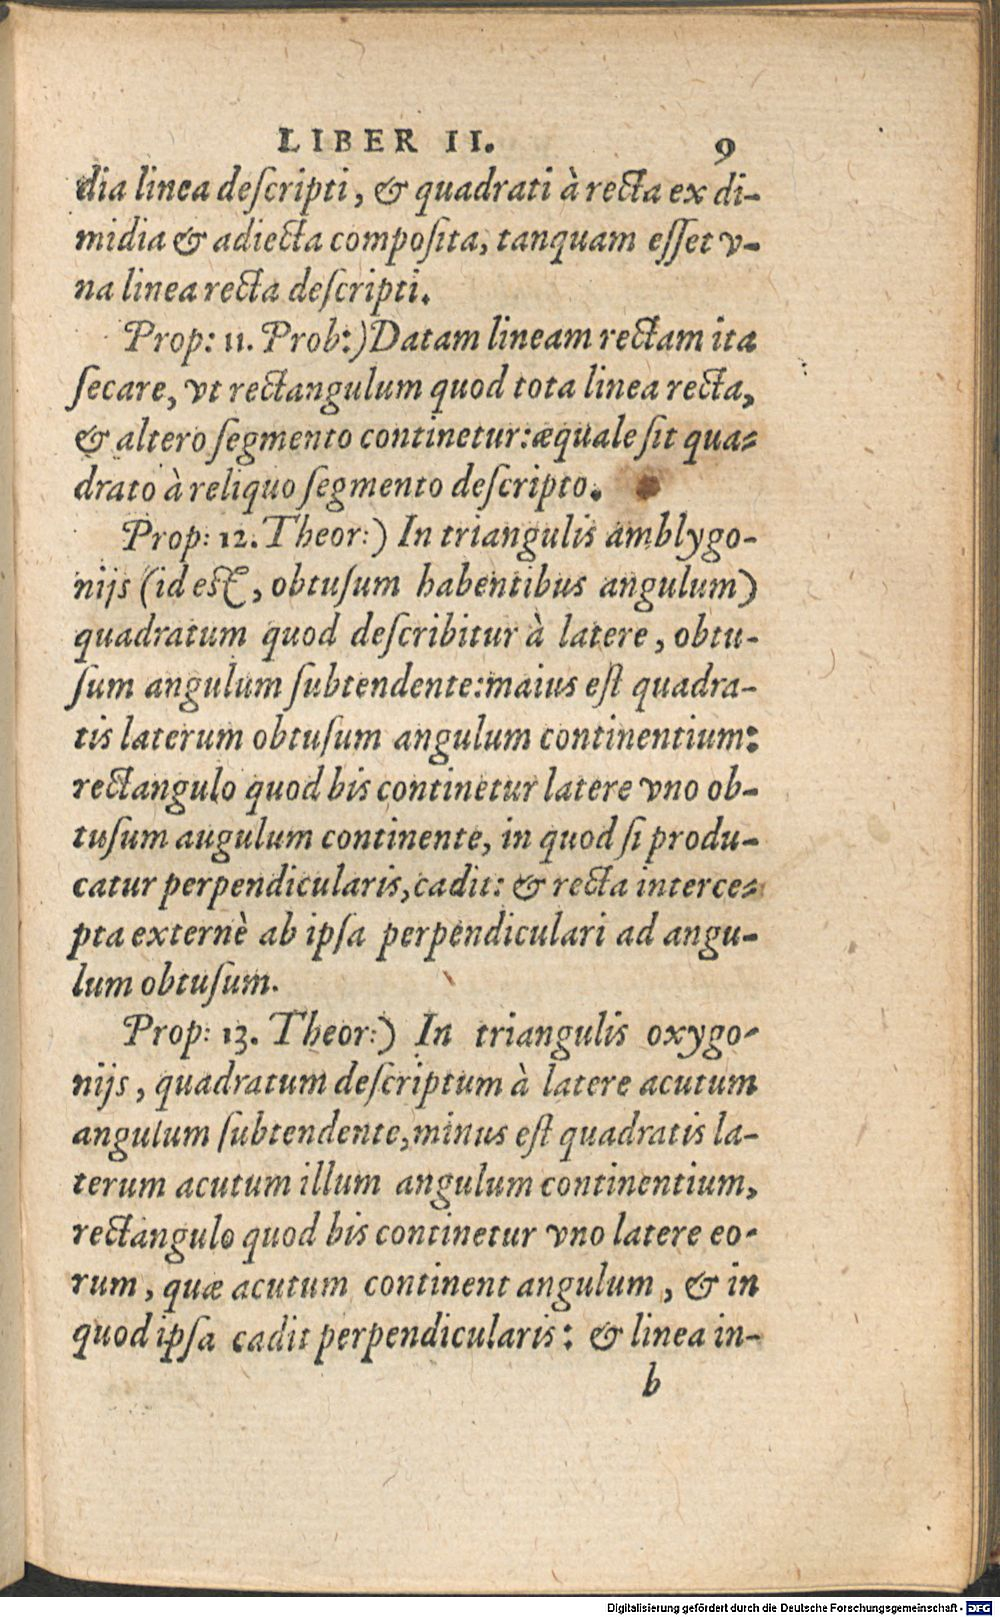 LIBER II. 9
dia linea deſcripti, & quadrati à recta ex di-
midia & adiecta compoſita, tanquam eſſet v-
na linea recta deſcripti.
Prop: 11. Prob:) Datam lineam rectam ita
ſecare, vt rectangulum quod tota linea recta,
& altero ſegmento continetur: æquale ſit qua-
drato à reliquo ſegmento deſcripto.
Prop: 12. Theor:) In triangulis amblygo-
nijs (id est, obtuſum habentibus angulum)
quadratum quod deſcribitur à latere, obtu-
ſum angulum ſubtendente: maius eſt quadra-
tis laterum obtuſum angulum continentium:
rectangulo quod bis continetur latere vno ob-
tuſum augulum continente, in quod ſi produ-
catur perpendicularis, cadit: & recta interce-
pta externè ab ipſa perpendiculari ad angu-
lum obtuſum.
Prop: 13. Theor:) In triangulis oxygo-
nijs, quadratum deſcriptum à latere acutum
angulum ſubtendente, minus eſt quadratis la-
terum acutum illum angulum continentium,
rectangulo quod bis continetur vno latere eo-
rum, quæ acutum continent angulum, & in
quod ipſa cadit perpendicularis: & linea in-
b
Digitalisierung gefördert durch die Deutsche Forschungsgemeinschaft - DFG